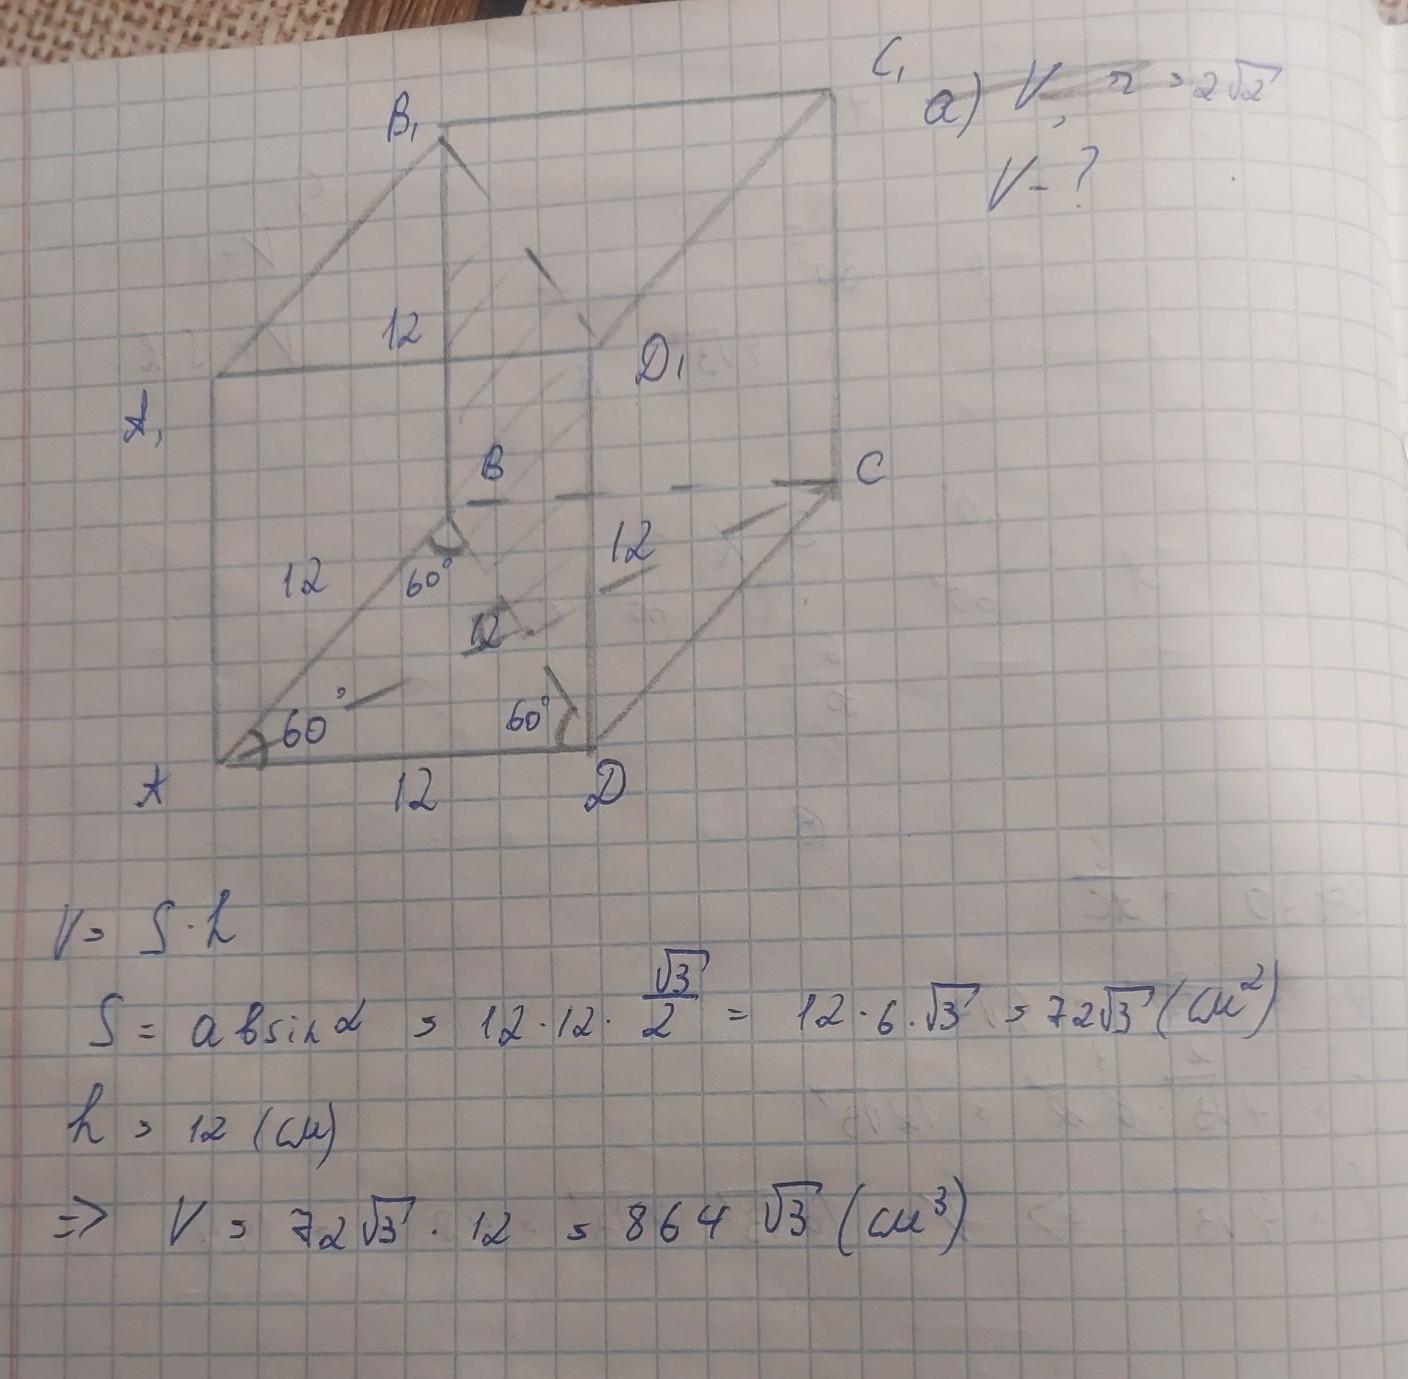 C₁
a) V, r = 2√2
B₁
V - ?
12
D₁
A₁
B
C
12
12
60°
12
60°
60°
A
12
D
V = S · h
S = a b sin α = 12 · 12 · √3/2 = 12 · 6 · √3 = 72√3 (см²)
h = 12 (см)
=> V = 72√3 · 12 = 864 √3 (см³)